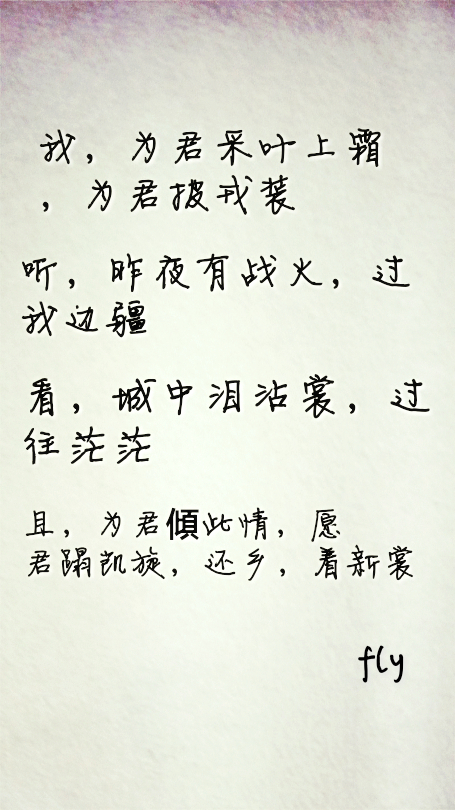 我，为君采叶上霜
，为君披戎装
听，昨夜有战火，过
我边疆
看，城中泪沾裳，过
往茫茫
且，为君傾此情，愿
君蹋凯旋，还乡，着新裳
fly